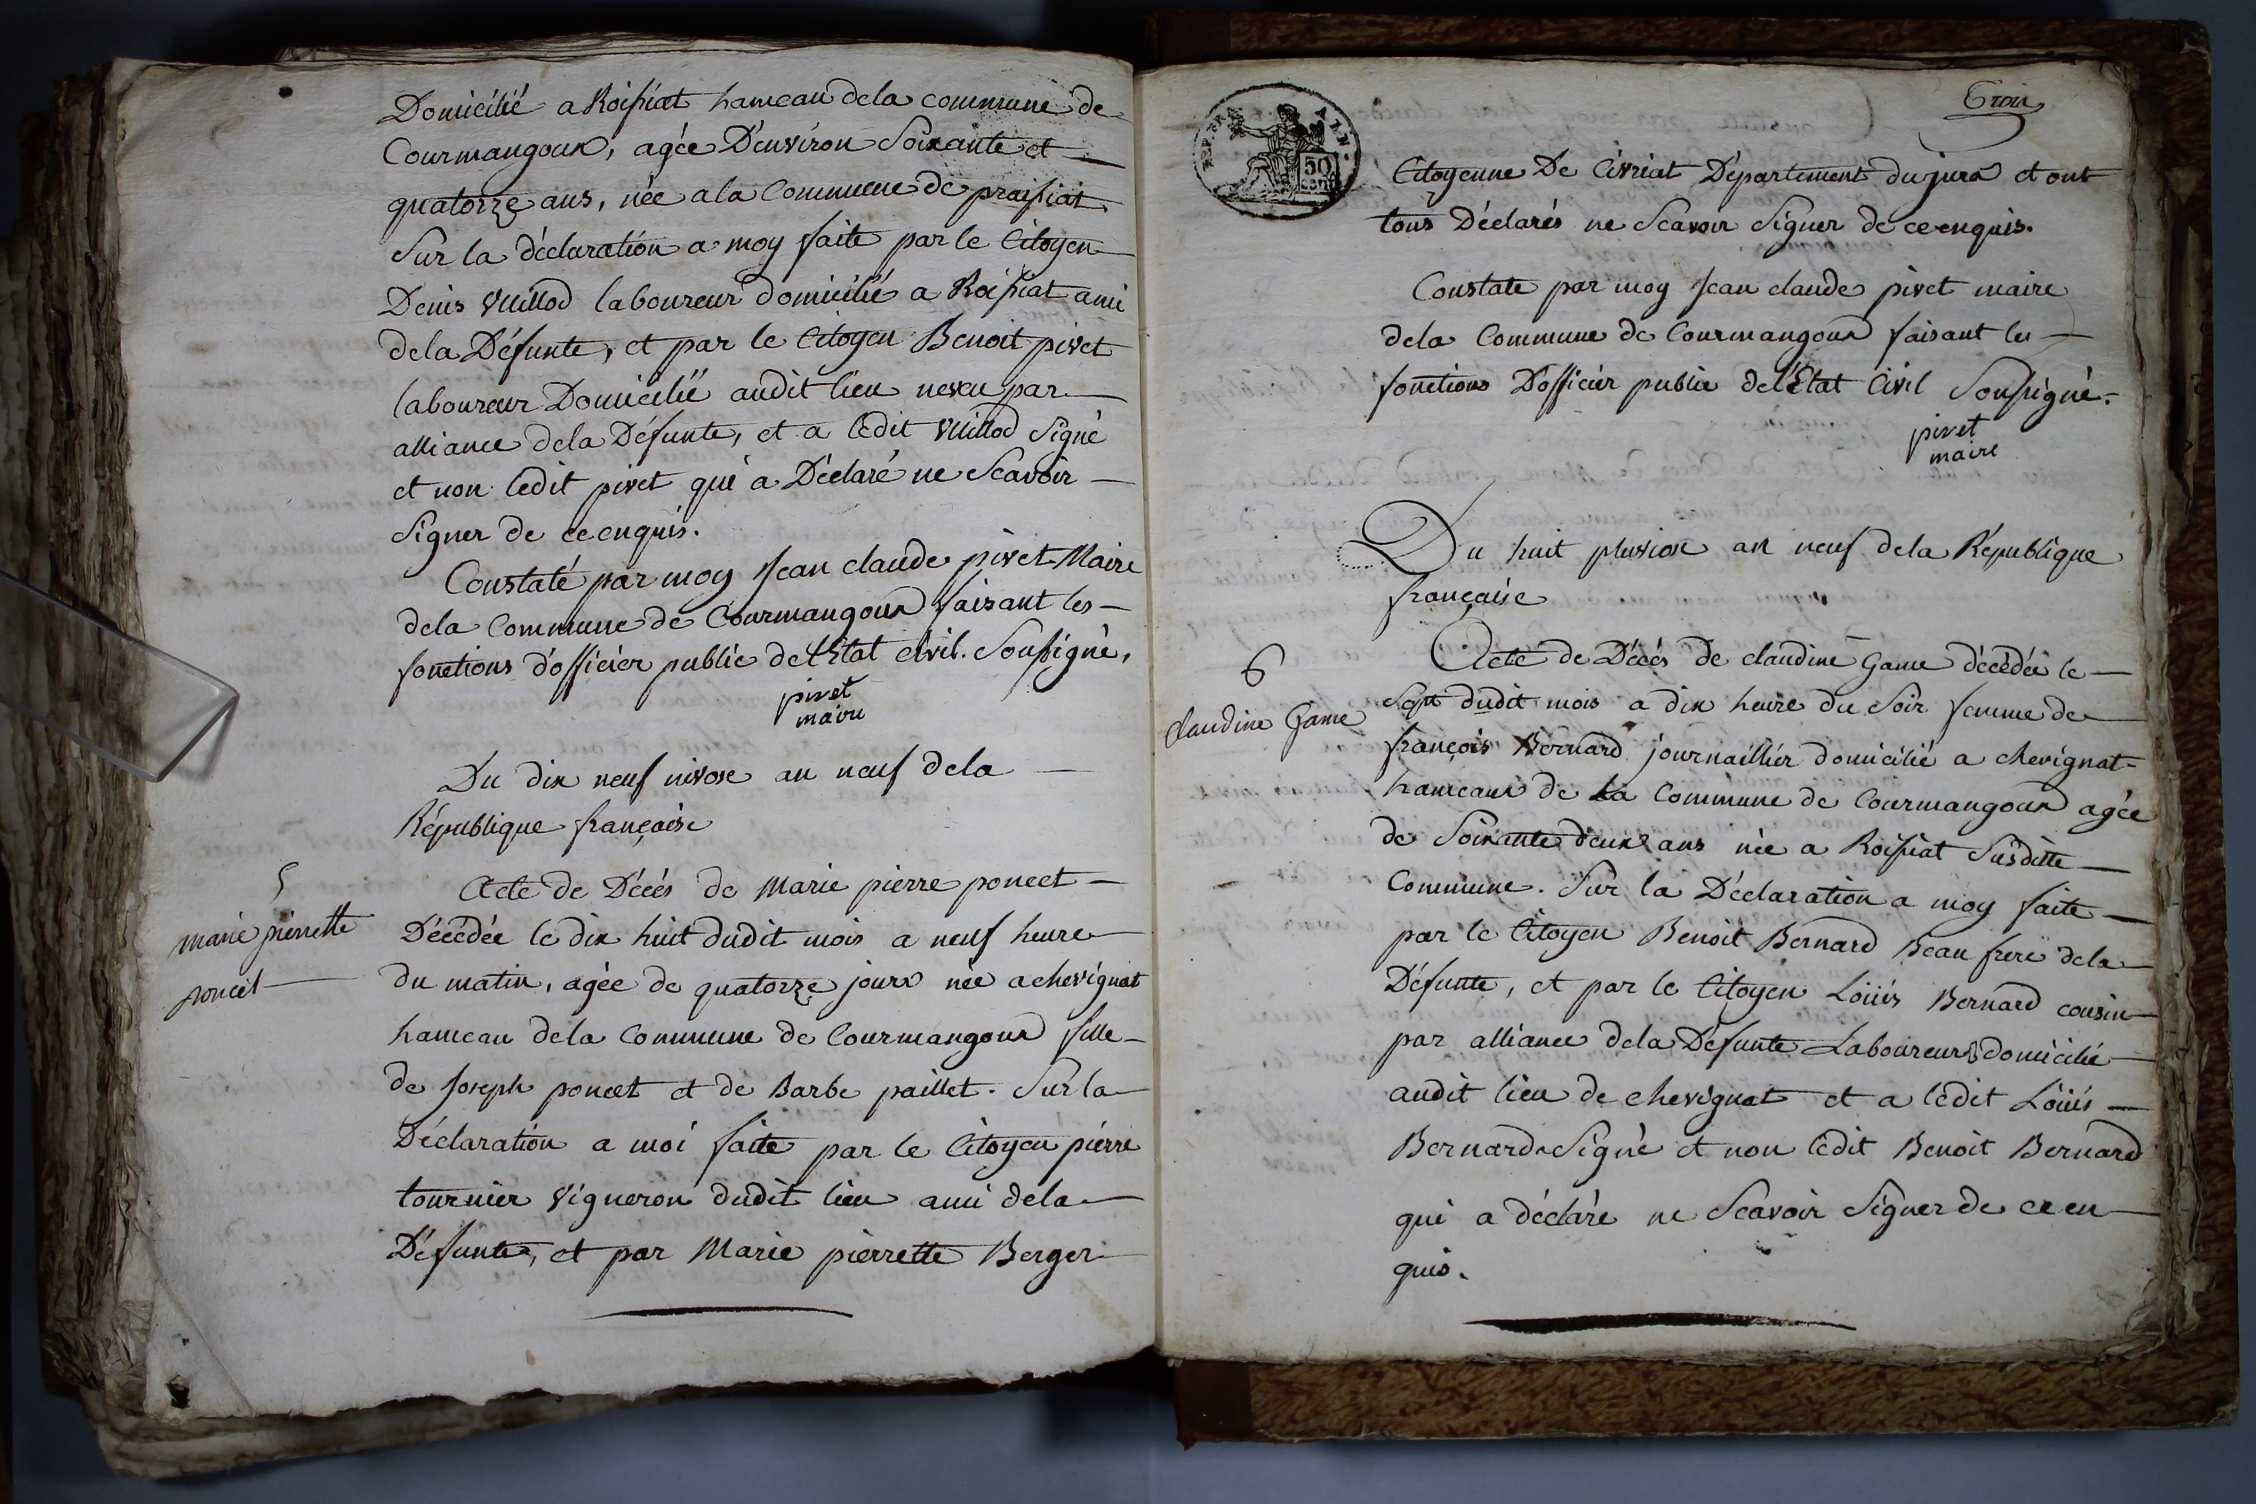 Domicilié a Roissiat hameau dela commune de
Courmangoux, agée D'environ Soixante et
quatorze ans, née a la Commune de praissiat
Sur la déclaration a moy faite par le Citoyen
Denis Vuillod laboureur domicilié a Roissiat ami
dela Défunte, et par le Citoyen Benoit pivet
laboureur Domicilié audit lieu neveu par
alliance dela Défunte, et a ledit Vuillod Signé
et non ledit pivet qui a Déclaré ne Scavoir
Signer de ce enquis.
Constaté par moy Jean claude pivet Maire
dela Commune de Courmangoux faisant les
fonctions d'officier public de l'Etat civil. Soussigné,
pivet
maire
Du dix neuf nivose an neuf dela
République françoise
5
marie pierrette
poncet
Acte de Décès de Marie pierre poncet
Décédée le dix huit dudit mois a neuf heure
du matin, agée de quatorze jours née a chevignat
hameau dela Commune de Courmangoux fille
de Joseph poncet et de Barbe paillet. Sur la
Déclaration a moi faite par le Citoyen pierre
tournier Vigneron dudit lieu ami dela
Défunte, et par Marie pierrette Berger
Trois
REP. FRA
50
CENT
Citoyenne De Civriat Département du jura et ont
tous Déclarés ne Scavoir Signer de ce enquis.
Constate par moy Jean claude pivet maire
dela Commune de Courmangoux faisant les
fonctions D'officier public de l'Etat Civil Soussigné.
pivet
maire
Du huit pluviose an neuf dela République
françaisie
6
Claudine Game
Acte de Décès de claudine Game décédée le
Sept dudit mois a dix heure du Soir femme de
françois Bernard journaillier domicilié a chevignat
hameaux de La Commune de Courmangoux agée
de Soixante deux ans née a Roissiat Susditte
Commune. Sur la Déclaration a moy faite
par le Citoyen Benoit Bernard Beau frere dela
Défunte, et par le Citoyen Loüis Bernard cousin
par alliance dela Défunte Laboureurs domicilié
audit lieu de chevignat et a ledit Loüis
Bernard Signé et non ledit Benoit Bernard
qui a déclaré ne Scavoir Signer de ce en
quis.